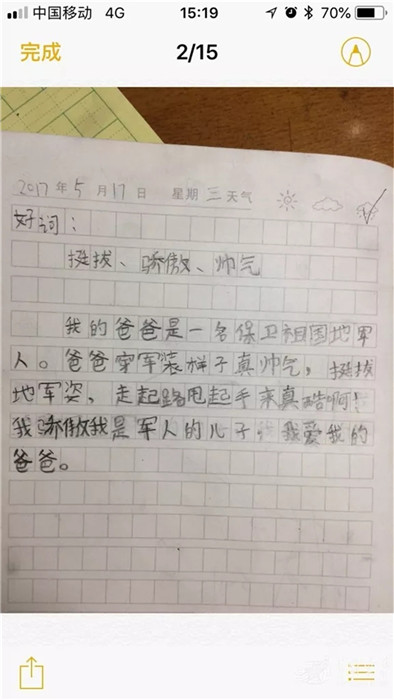 中国移动 4G 15:19 70%
完成 2/15
2017年5月17日 星期三天气
好词:
挺拔、骄傲、帅气
我的爸爸是一名保卫祖国地军
人。爸爸穿军装样子真帅气,挺拔
地军姿,走起路甩起手来真酷啊!
我骄傲我是军人的儿子,我爱我的
爸爸。